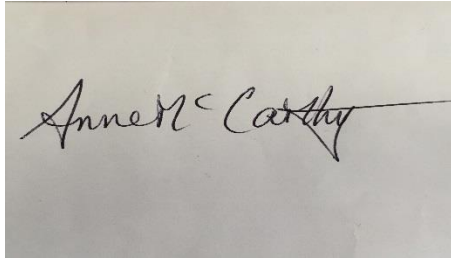 Anne Mc Carthy